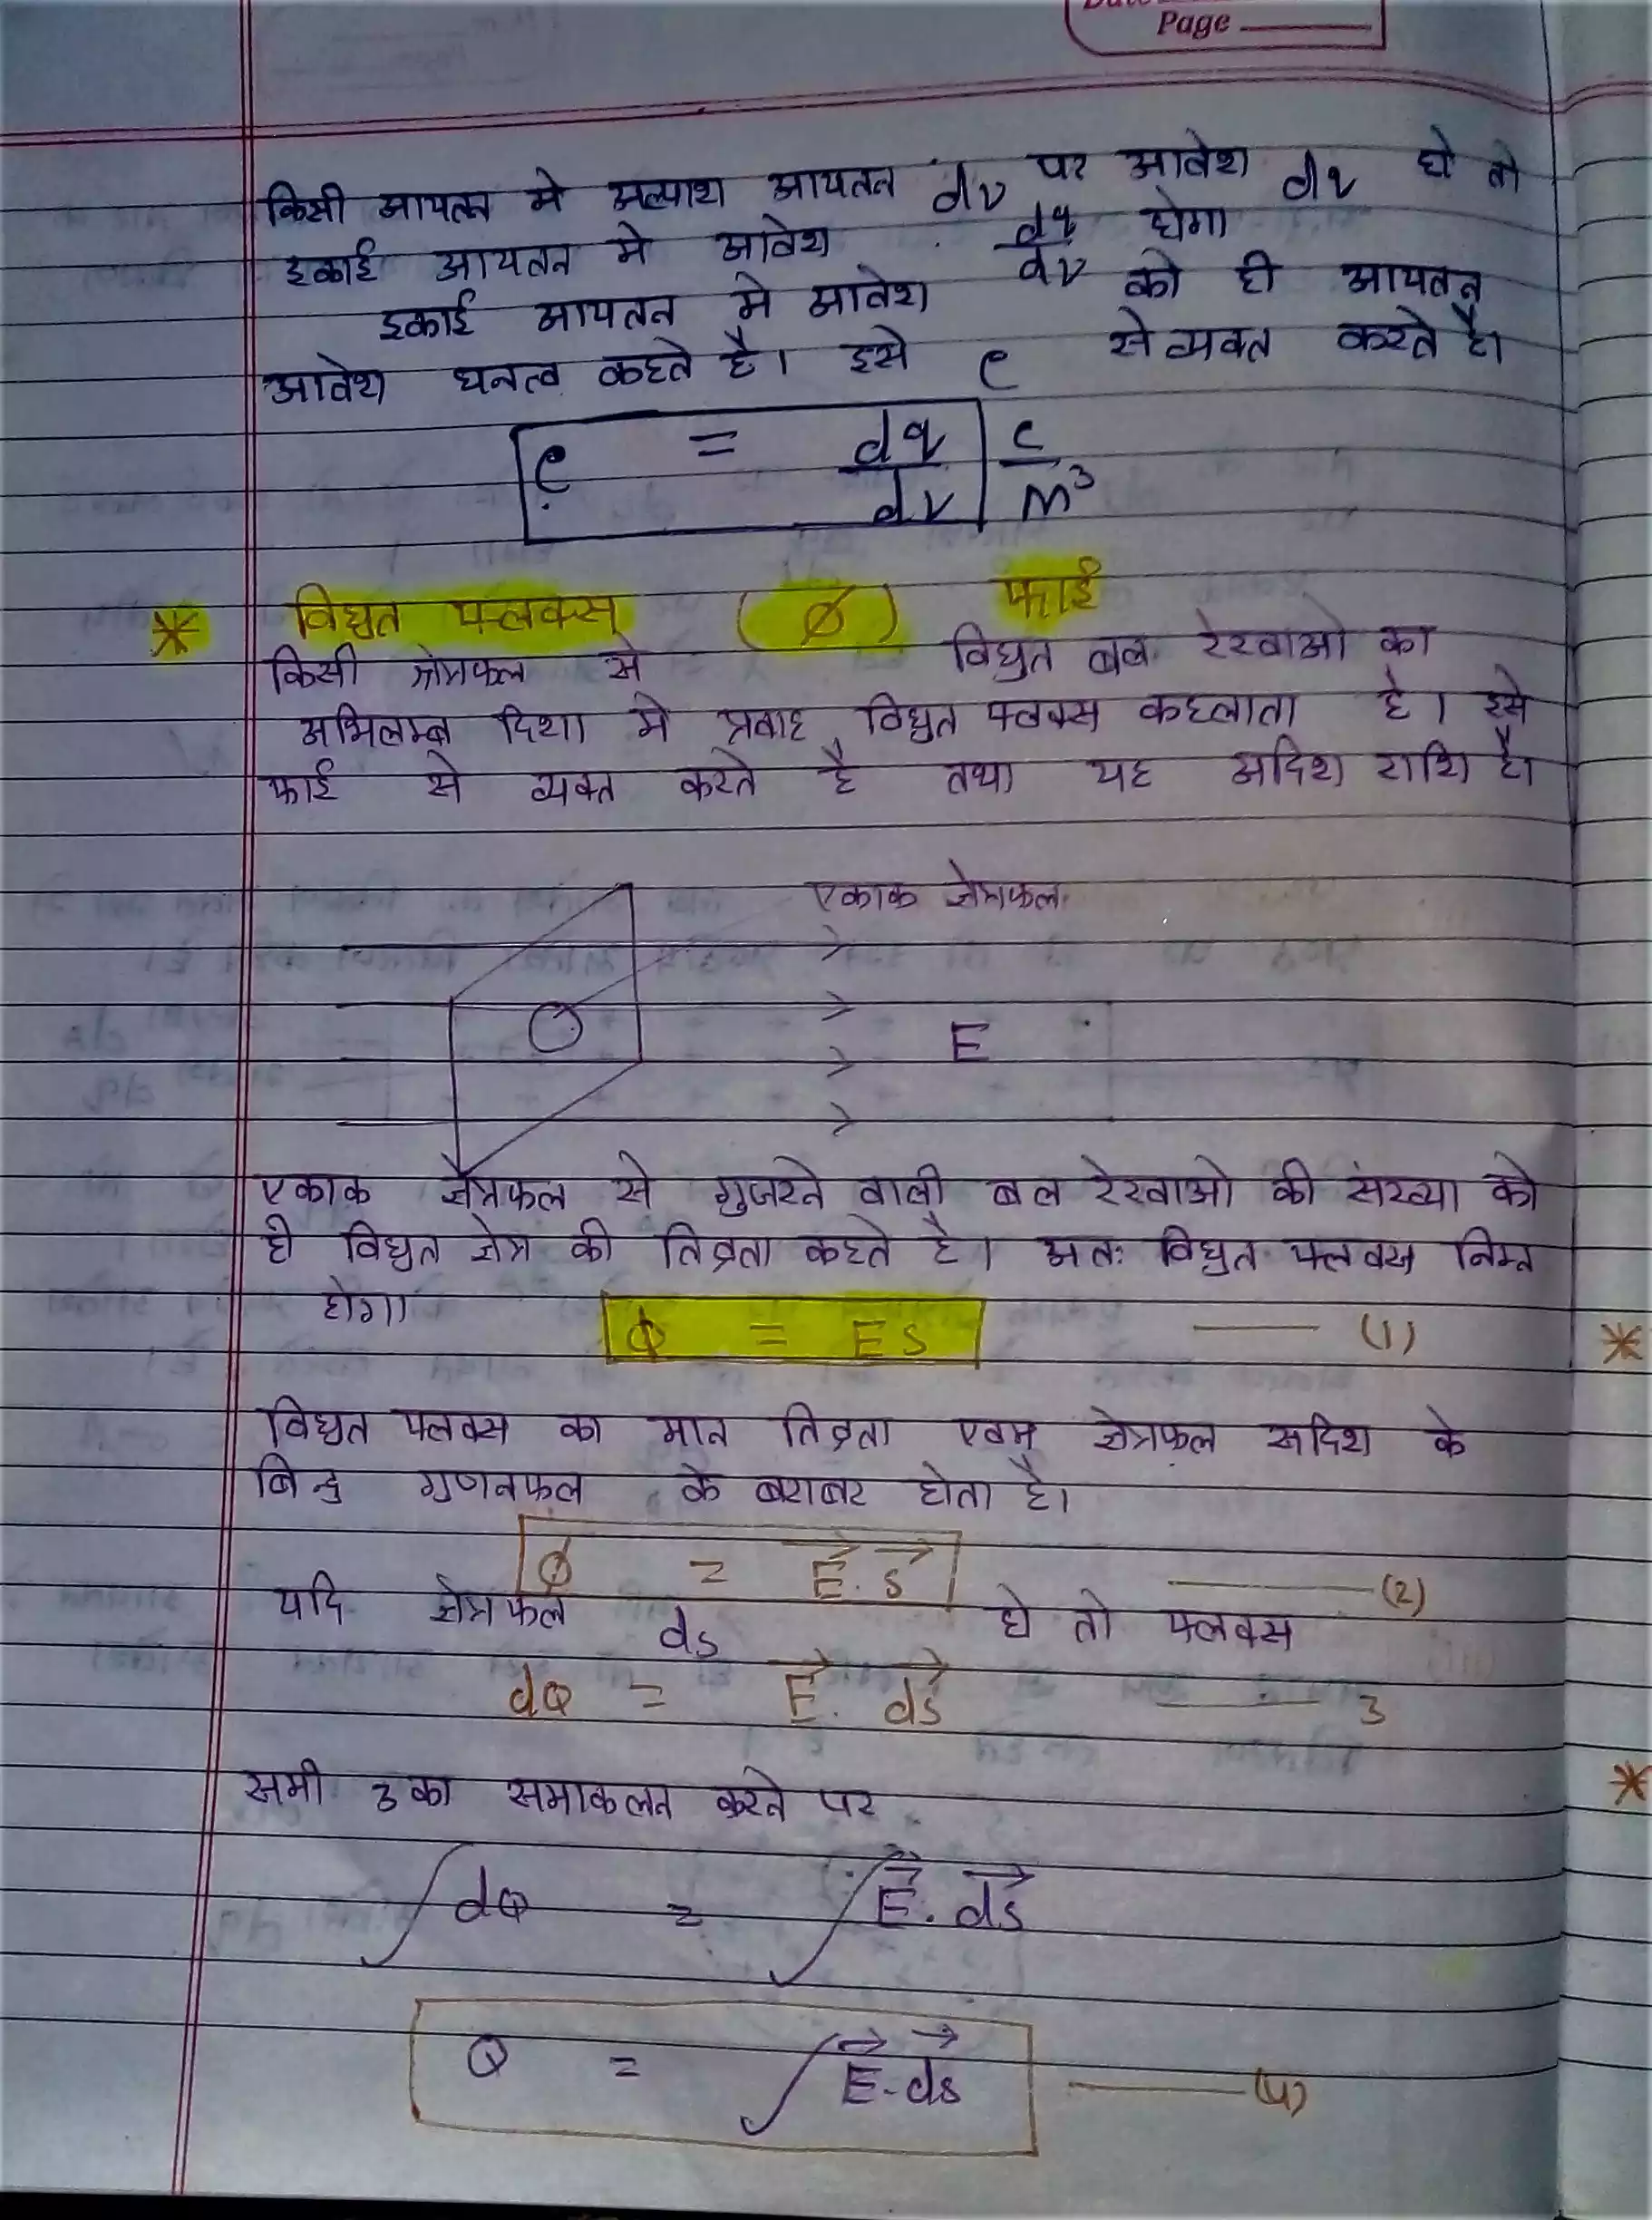 Page
किसी आयतन मे अल्पाश आयतन dv पर आवेश dq हो तो
इकाई आयतन मे आवेश dq/dv होगा
इकाई आयतन मे आवेश को ही आयतन
आवेश घनत्व कहते है। इसे ρ से व्यक्त करते है।
ρ = dq/dv c/m³
* विद्युत फ्लक्स (Ø) फाई
किसी क्षेत्रफल से विद्युत बल रेखाओ का
अभिलम्ब दिशा मे प्रवाह विद्युत फ्लक्स कहलाता है। इसे
फाई से व्यक्त करते है तथा यह अदिश राशि है।
एकाक क्षेत्रफल
E
एकाक क्षेत्रफल से गुजरने वाली बल रेखाओ की संख्या को
ही विद्युत क्षेत्र की तिव्रता कहते है। अतः विद्युत फ्लक्स निम्न
होगा
ϕ = ES —— (1) *
विद्युत फ्लक्स का मान तिव्रता एवम् क्षेत्रफल सदिश के
बिन्दु गुणनफल के बराबर होता है।
ϕ = E⃗.s⃗ —— (2)
यदि क्षेत्रफल ds हो तो फ्लक्स
dϕ = E⃗. ds⃗ —— 3
समी 3 का समाकलन करते पर *
∫dϕ = ∫E⃗. ds⃗
ϕ = ∫E⃗.ds⃗ —— (4)